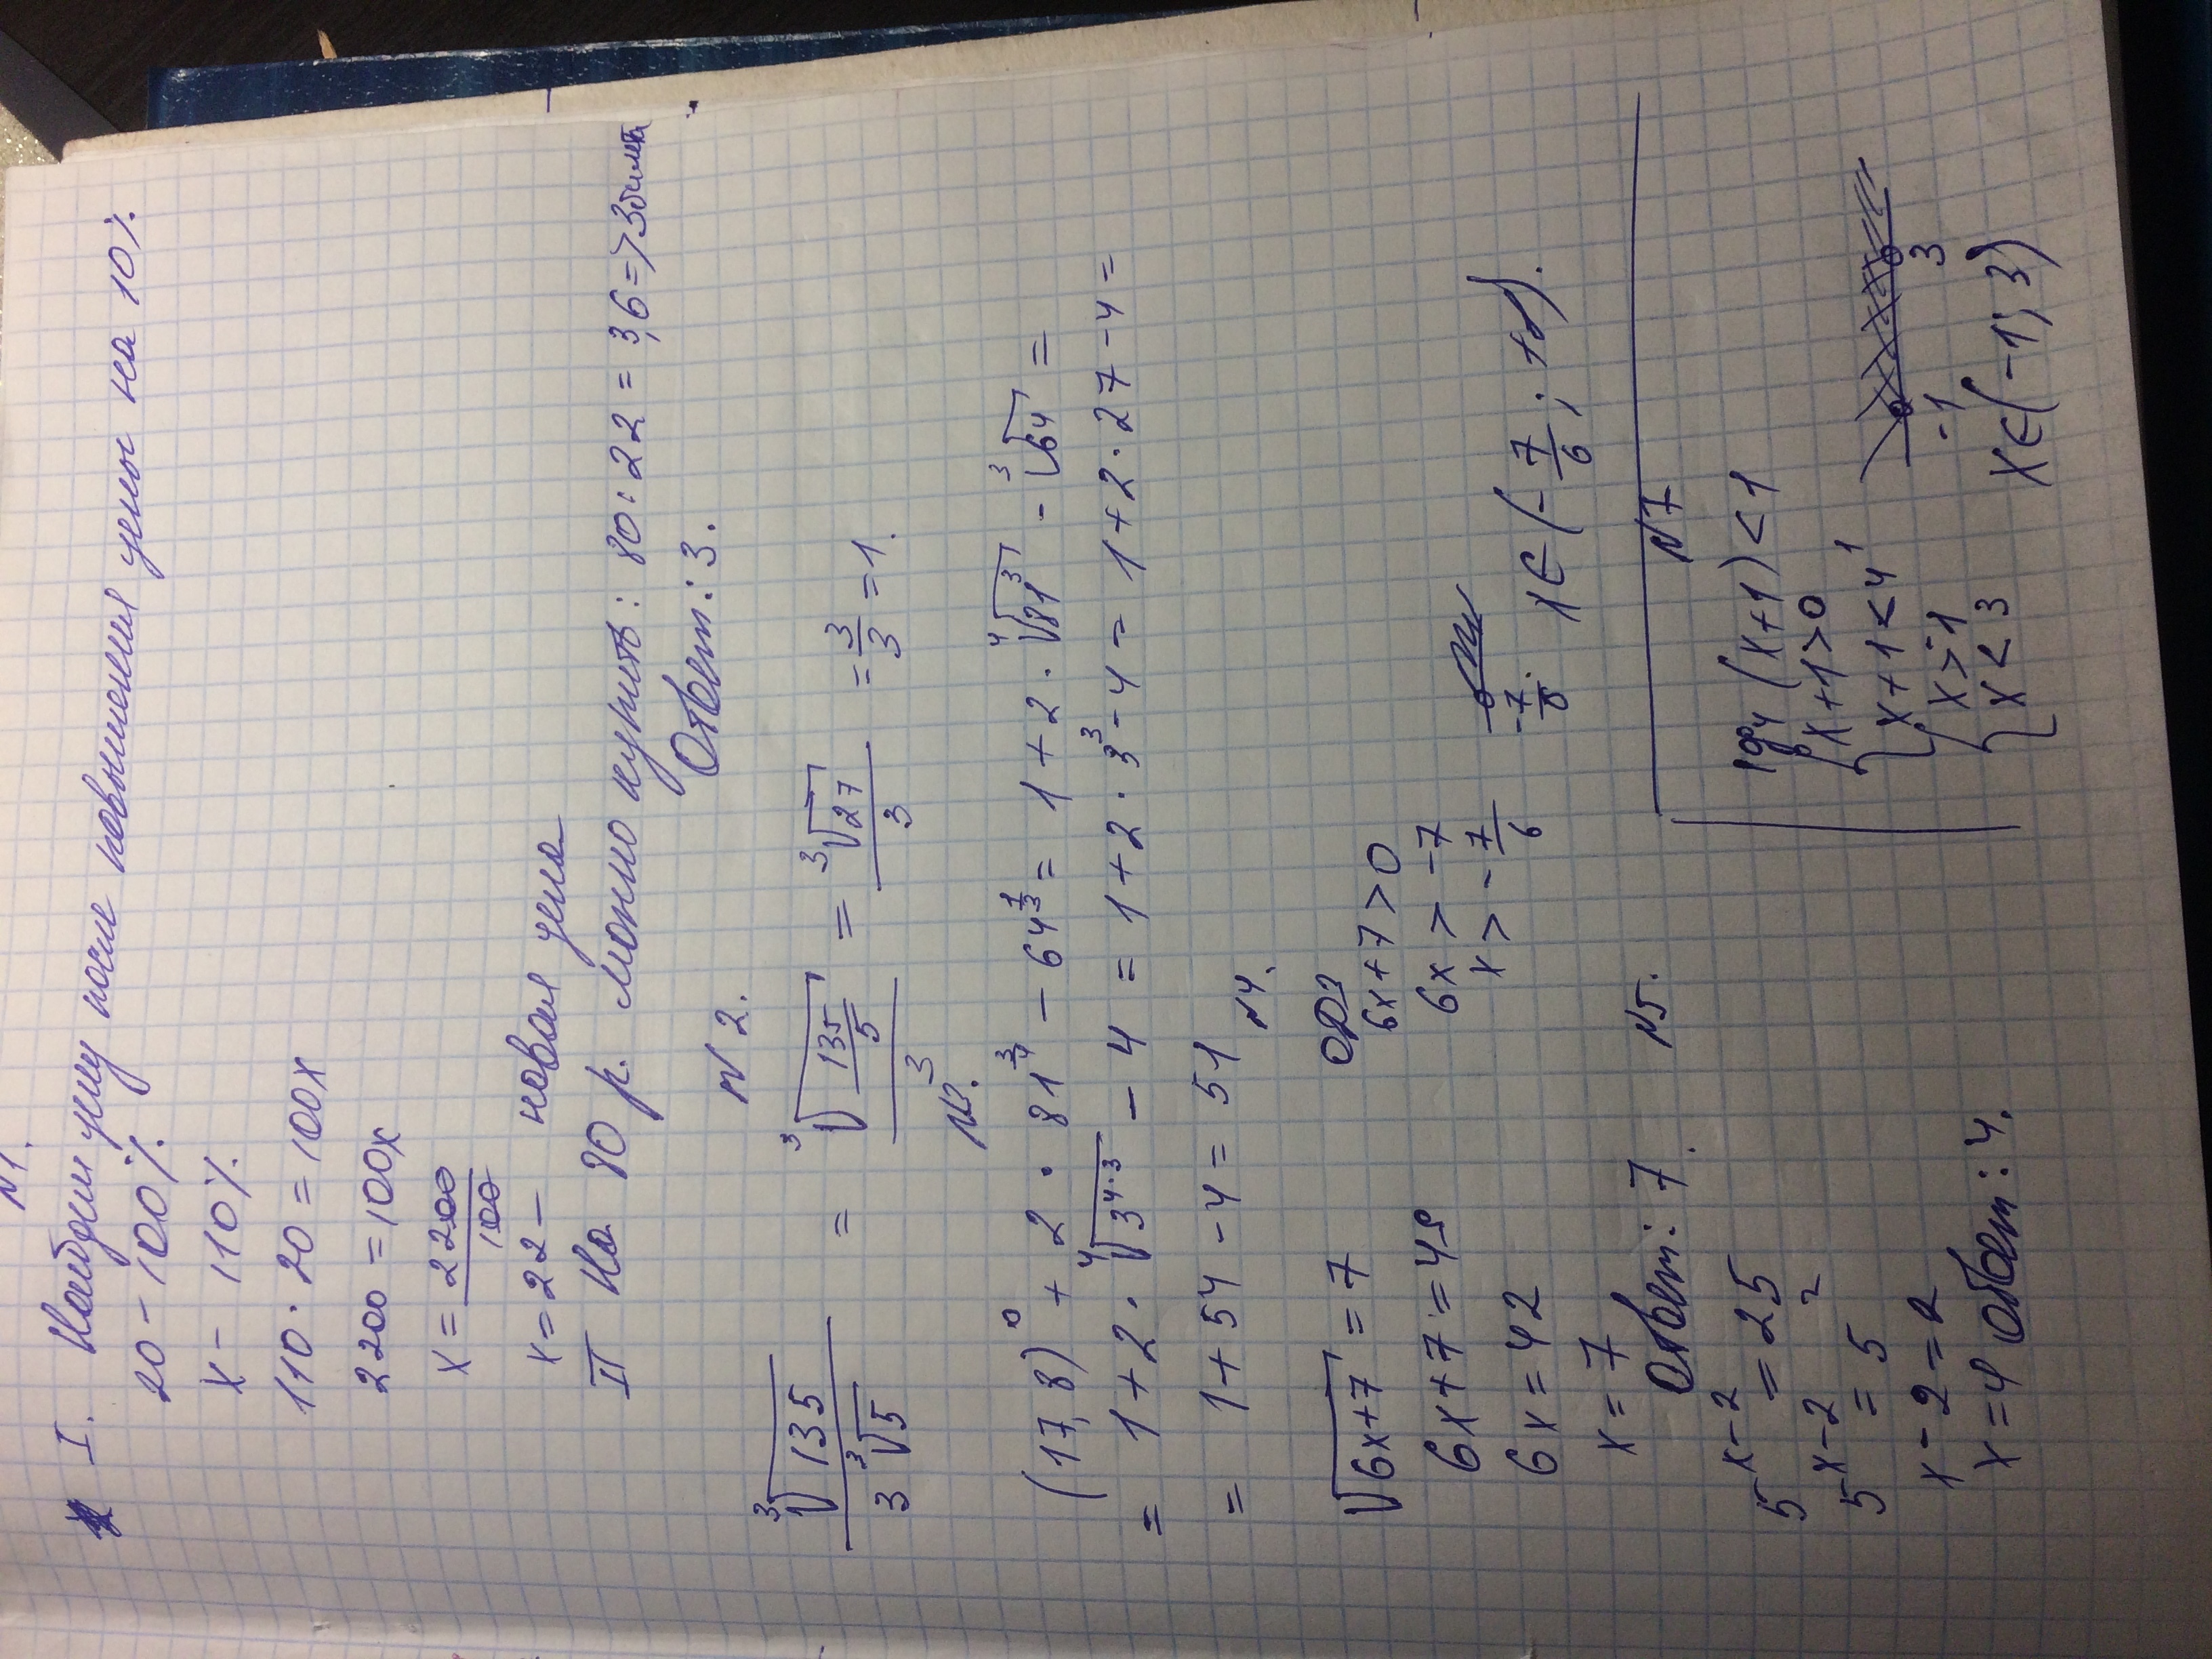 N1.
I. Найдем цену после повышения цены на 10%
20 - 100%
x - 110%
110 · 20 = 100x
2200 = 100x
x = 2200/100
x = 22 - новая цена
II На 80 р. можно купить: 80 : 22 = 3,6 => 3 билета
Ответ: 3.
N 2.
∛135 / 3∛5 = ∛(135/5) / 3 = ∛27 / 3 = 3/3 = 1.
N3.
(17,8)⁰ + 2 · 81^(3/4) - 64^(1/3) = 1 + 2 · ⁴√81³ - ³√64 =
= 1 + 2 · ⁴√3^(4·3) - 4 = 1 + 2 · 3³ - 4 = 1 + 2 · 27 - 4 =
= 1 + 54 - 4 = 51
N4.
√(6x+7) = 7
6x + 7 = 49
6x = 42
x = 7
Ответ: 7.
ОДЗ
6x + 7 > 0
6x > -7
x > -7/6
-7/6
x ∈ (-7/6; +∞).
N5.
5^(x-2) = 25
5^(x-2) = 5²
x - 2 = 2
x = 4 Ответ: 4.
N7
log₄(x+1) < 1
{ x+1 > 0
x+1 < 4¹
{ x > -1
x < 3
-1 3
x ∈ (-1; 3)